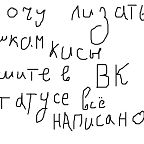 очу лизать
шкам
кисы
шите в ВК
татусе всё
написано